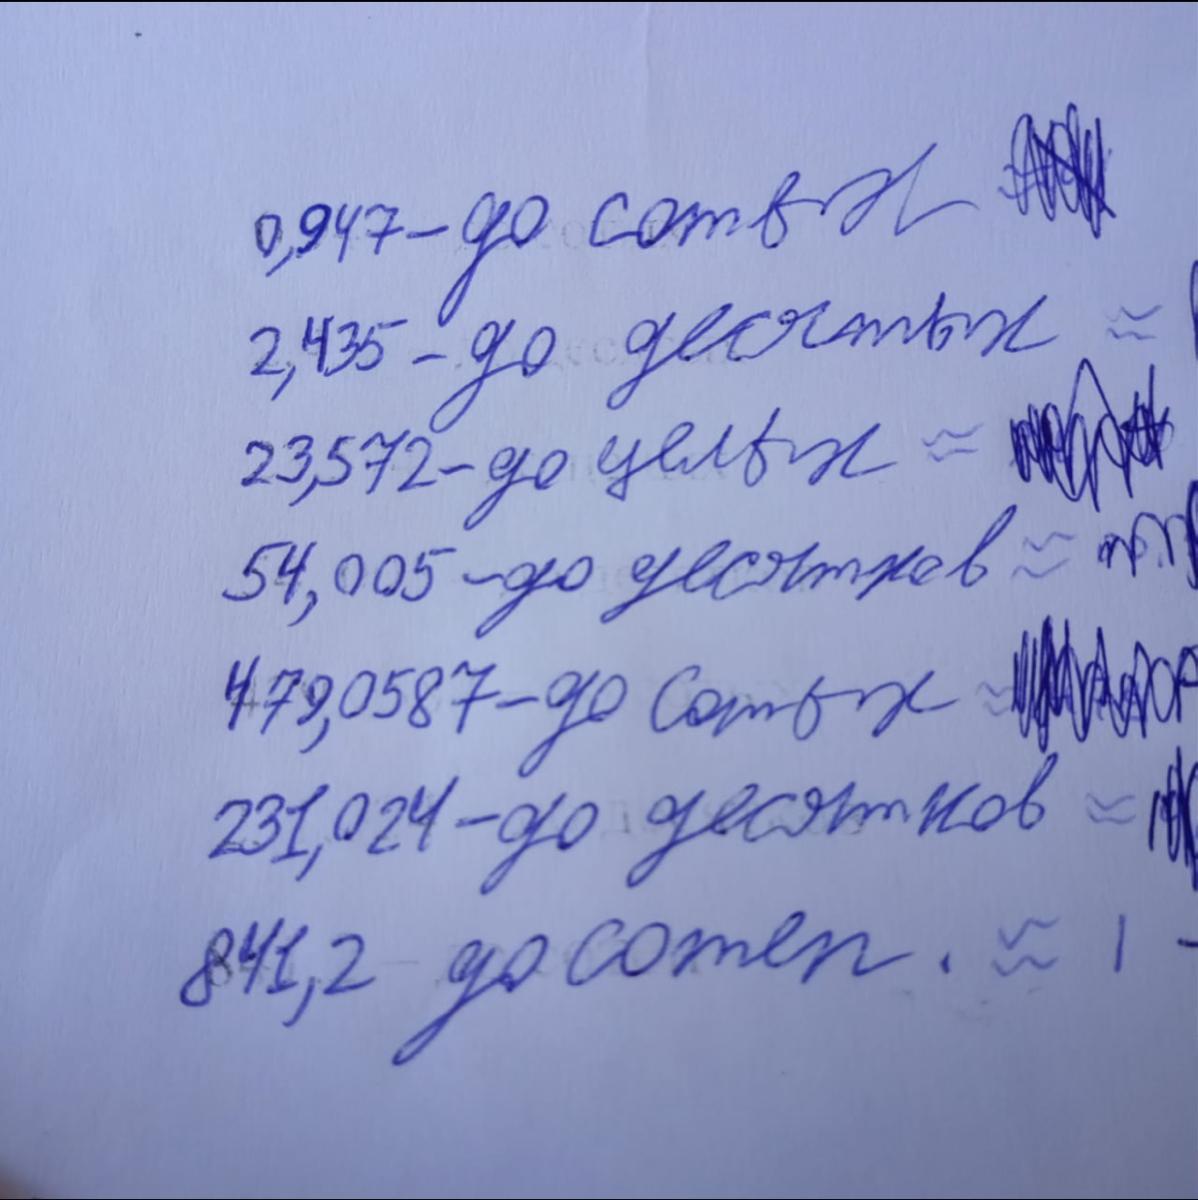 0,947 - до сотых
2,435 - до десятых ≈
23,572 - до целых ≈
54,005 - до десятков ≈
479,0587 - до сотых ≈
231,024 - до десятков ≈
841,2 до сотен. ≈ 1 -